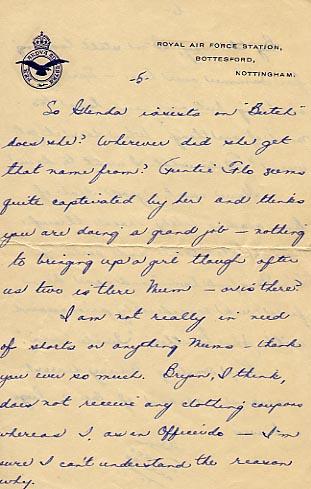 ROYAL AIR FORCE STATION,
BOTTESFORD,
NOTTINGHAM.
-5-
So Glenda insists on "Butch"
does she? Wherever did she get
that name from? Auntie Flo seems
quite captivated by her and thinks
you are doing a grand job - nothing
to bringing up a girl though after
us two is there Mum - or is there?
I am not really in need
of shorts or anything Mums - thank
you ever so much. Bryan, I think,
does not receive any clothing coupons
whereas I, as an Officer do - I'm
sure I can't understand the reason
why.